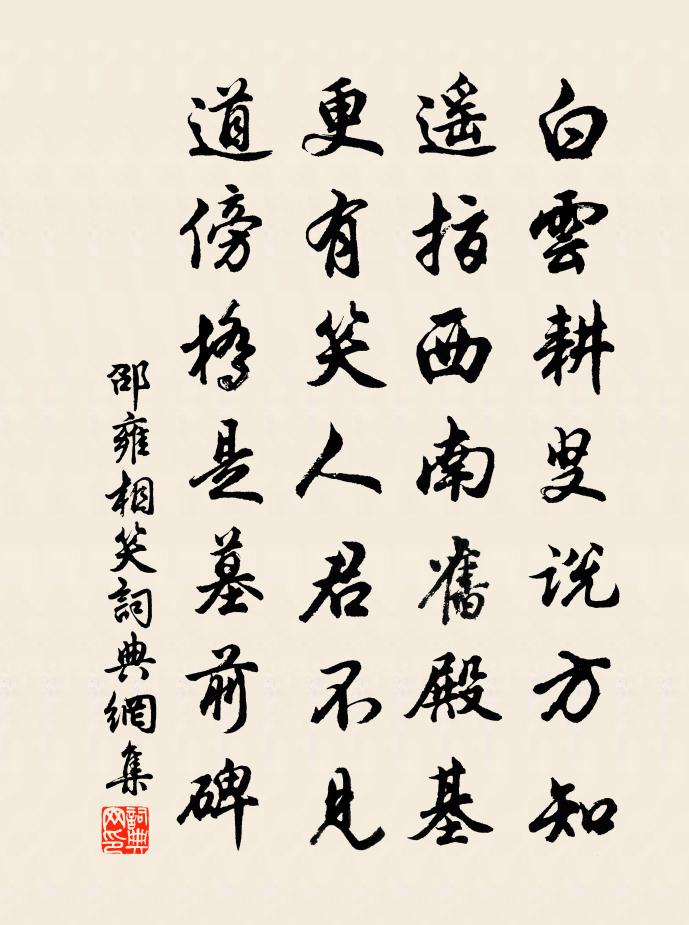 白雲耕叟説方知
遥指西南舊殿基
更有笑人君不見
道傍橋是墓前碑
邵雍相笑詞典網集
詞典網印